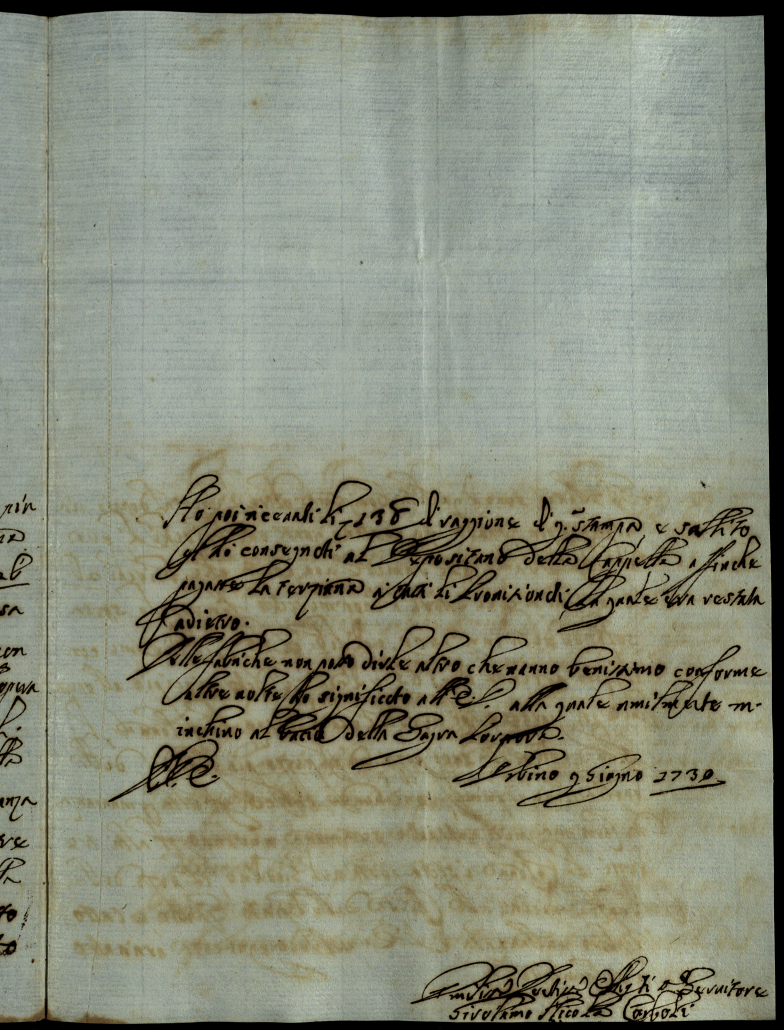 Ho poi riceuuti li 138 di raggione di q. stampa e subbito
gli hò consegnati al Depositario della Cappella affinche
pagasse la terziaria a tutti li Provisionati la quale era restata
adietro.
Delle fabriche non posso dirle altro che uanno benissimo conforme
altre uolte hò significato all' E. V. alla quale umilmente m'
inchino al bacio della Sagra Porpora.
D. V. E. Urbino 9 Giugno 1730
Servitore
Girolamo Nicola